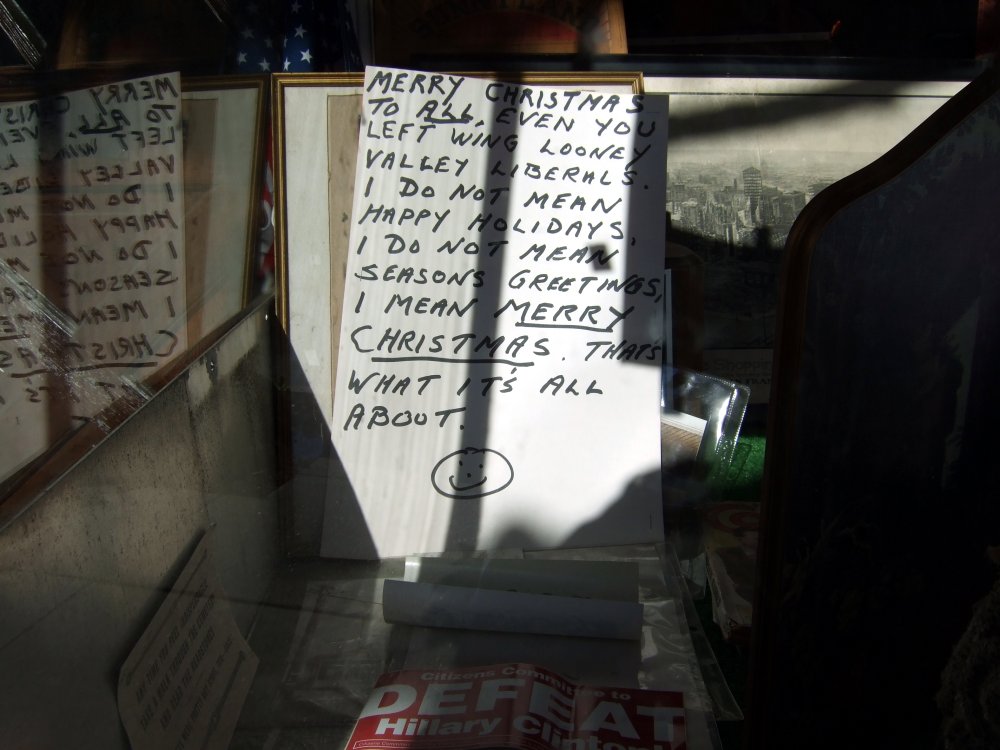 MERRY CHRISTMAS
TO ALL, EVEN YOU
LEFT WING LOONEY
VALLEY LIBERALS.
I DO NOT MEAN
HAPPY HOLIDAYS,
I DO NOT MEAN
SEASONS GREETINGS,
I MEAN MERRY
CHRISTMAS. THATS
WHAT IT'S ALL
ABOUT.
Citizens Committee to
DEFEAT
Hillary Clinton